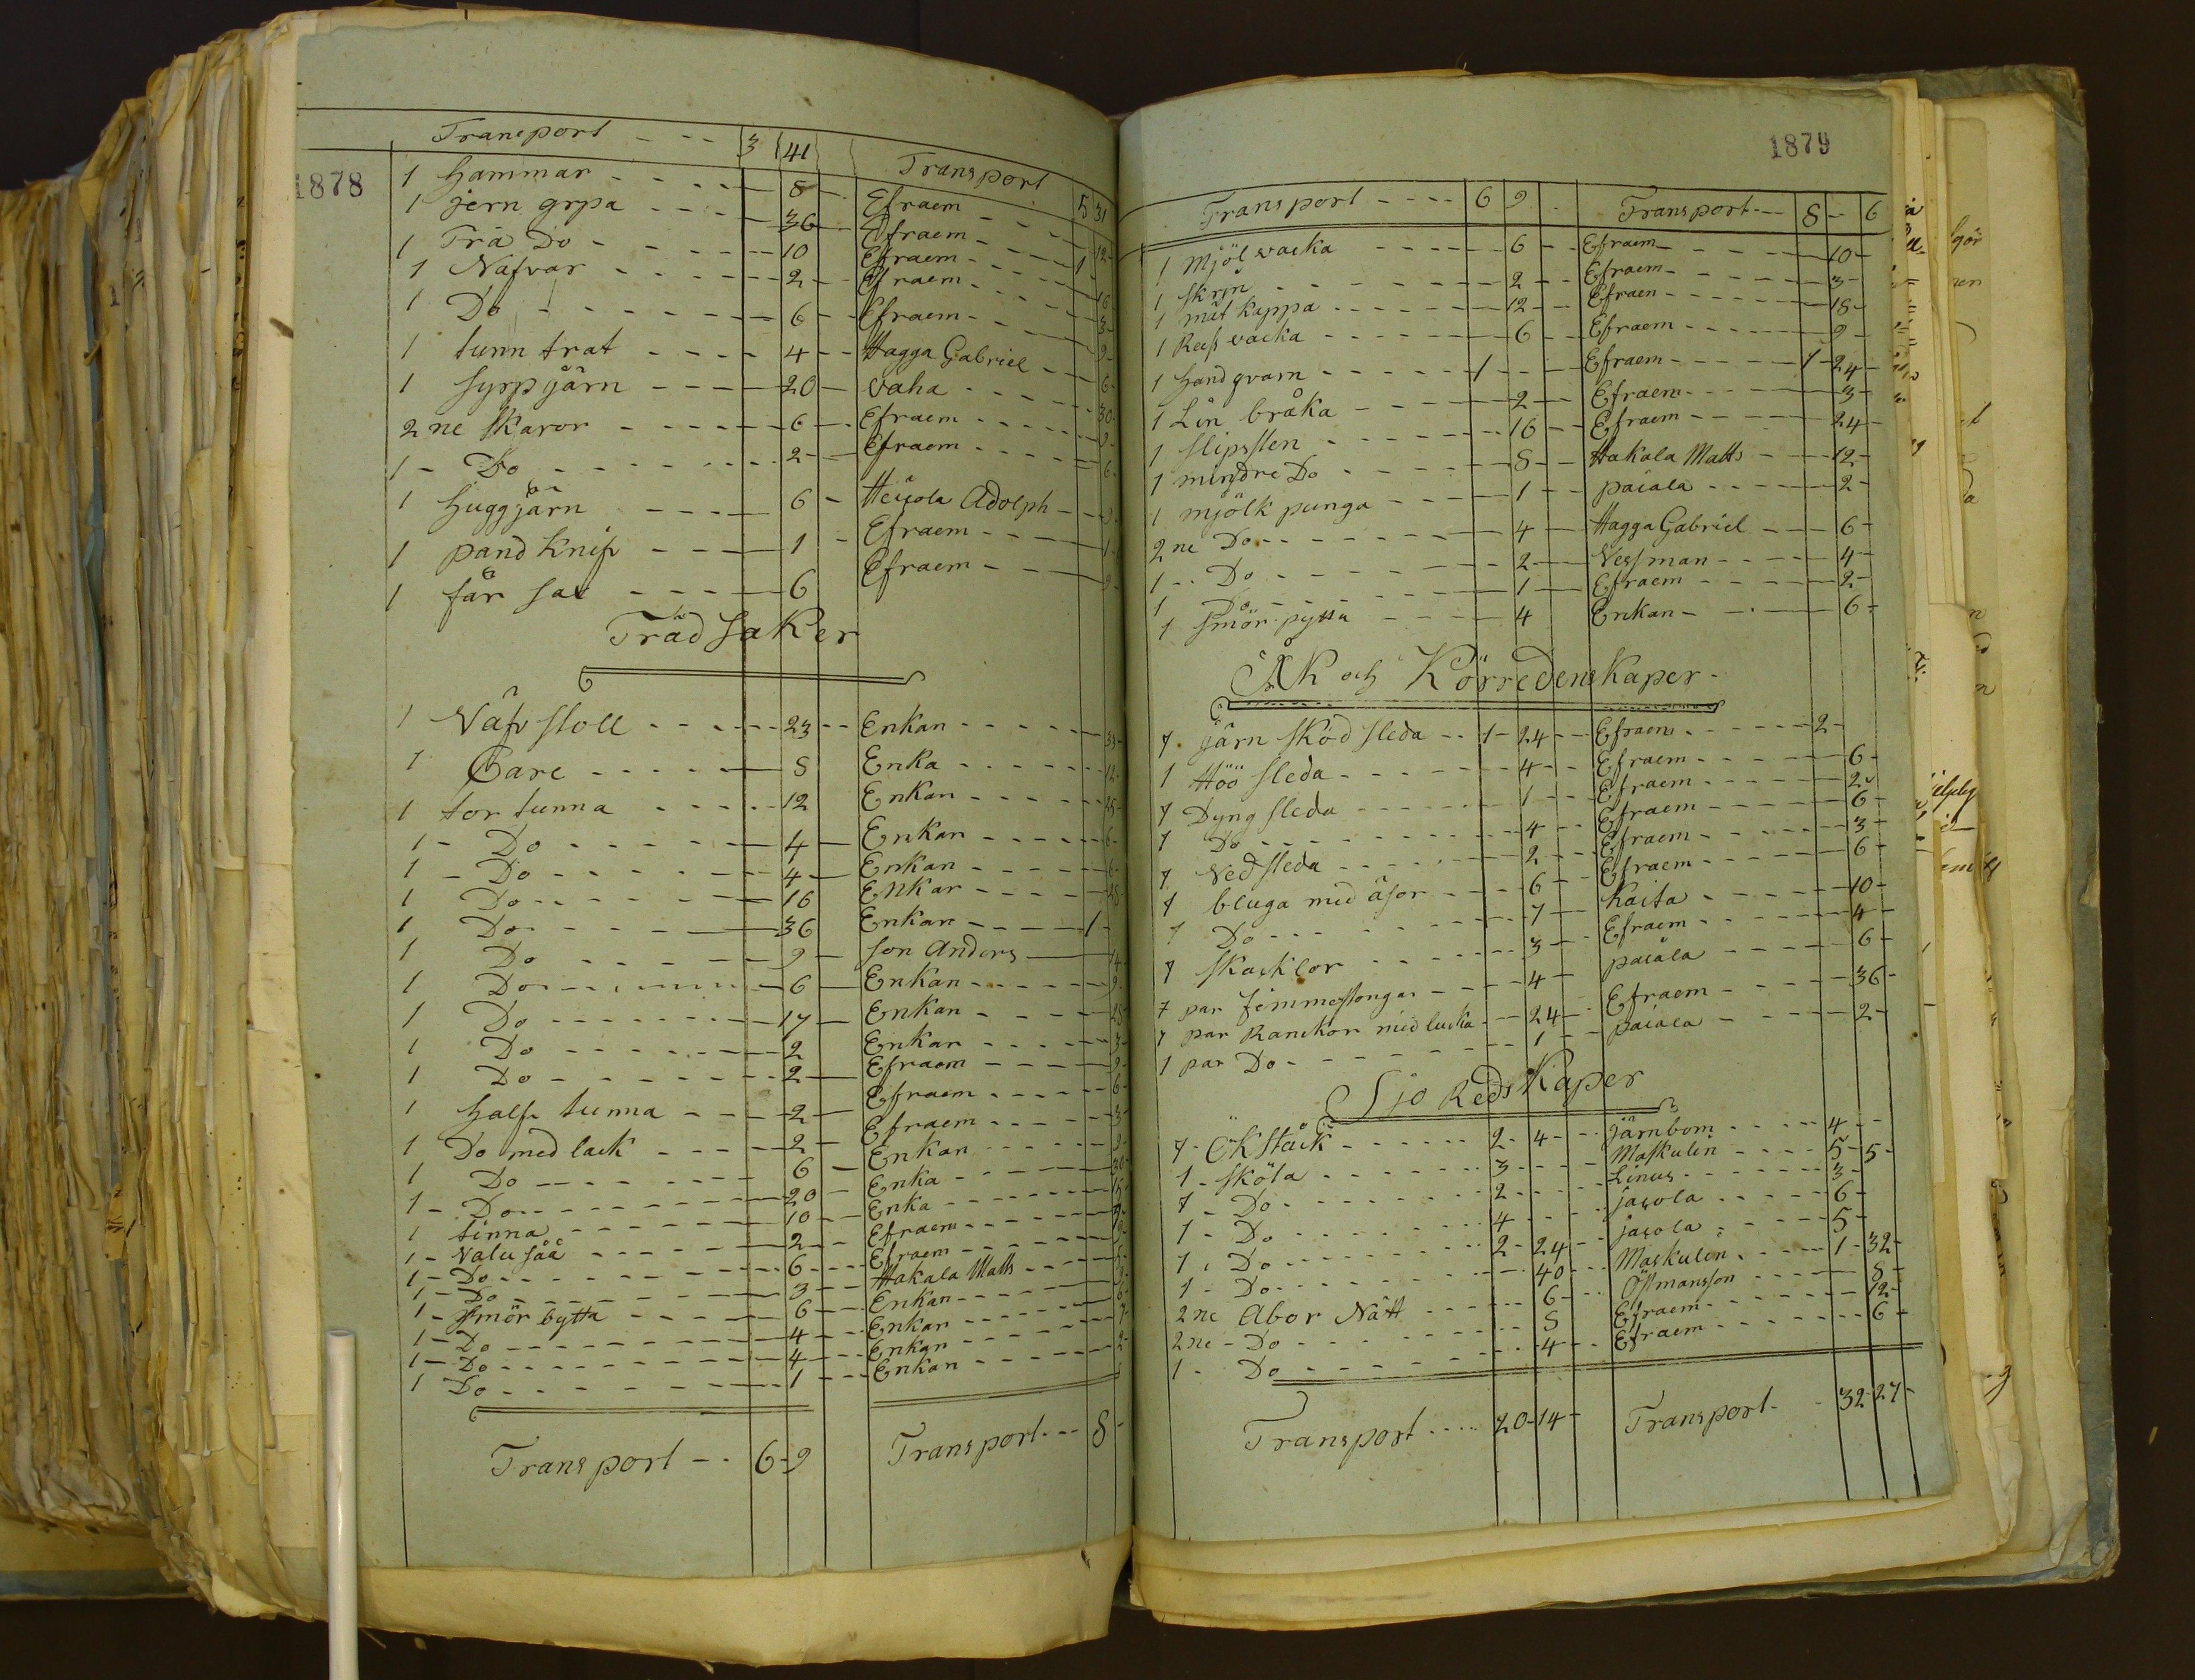 1878
Transport - - - 3 41 Transport 5 31
1 Hammar - - - - 8 - Efraem - - - 12-
1 jern grpa - - - - 36 - Efraem - - - 1
1 Trä Do - - - - 10 Efraem - - - - 16
1 Nafvar - - - - 2 - Efraem - - - - 3-
1 Do - - - - - - 6 - Efraem - - - - 9-
1 tunn trat - - - - 4 - - Hagga Gabriel - - 6-
1 Sypp järn - - - - 20 - vaha - - - - 30-
2 ne Skaror - - - - - 6 - Efraem - - - - 9-
1 - Do - - - - - - - 2 - - Efraem - - - - 6-
1 Huggjärn - - - - 6 - Heicola Adolph - - 9-
1 pand Knif - - - - 1 - Efraem - - - 1-
1 får sax - - - - 6 Efraem - - - 9-
Träd saker
1 Väfv stoll - - - - - 23 - - Enkan - - - - - 33-
1 Care - - - - - 8 Enka - - - - - 12-
1 tor tunna - - - - - 12 Enkan - - - - -
1 - Do - - - - - - - 4 - Enkan - - - - - 6-
1 - Do - - - - - - - 4 - Enkan - - - - - 6-
1 Do - - - - - - - 16 Enkan - - - -
1 Do - - - - - - 36 Enkan - - - - 1 -
1 Do - - - - - - 9 - son Anders - - 14-
1 Do - - - - - - - 6 - Enkan - - - - - 9-
1 Do - - - - - - - 17 - Enkan - - - - -
1 Do - - - - - - - 2 Enkan - - - - - 3-
1 Do - - - - - - - 2 - Efraem - - - -
1 half tunna - - - - 2 - Efraem - - - - - 6-
1 Do med lack - - - - 2 - Efraem - - - - 3-
1 Do - - - - - - - 6 - Enkan - - - - - 9-
1 - Do - - - - - - - 20 - Enka - - - - - 30-
1 tinna - - - - - - 10 - - Enka - - - - - 15-
1 - Valu såå - - - - - 2 - - Efraem - - - - -
1 - Do - - - - - - - 6 - - - Efraem - - - -
1 - Do - - - - - - - 3 - - Hakala Matts - - - -
1 - Smör bytta - - - - - 6 - - Enkan - - - - -
1 - Do - - - - - - - 4 - - - Enkan - - - - -
1 - Do - - - - - - - 4 - - - Enkan - - - - -
1 Do - - - - - - - 1 - - - Enkan - - - - -
Transport - - 6 - 9 Transport - - - 8 -
1879
Transport - - - - 6 9 - Transport - - 8 - 6
1 Mjöl vacka - - - - 6 - - Efraem - - - - - 10 -
1 Skrin - - - - - - 2 - - Efraem - - - - - 3 -
1 mät kappa - - - - - 12 - Efraen - - - - - - 18 -
1 Reiss vacka - - - - - 6 - Efraem - - - - - - 9 -
1 Handqvarn - - - - - - 1 - - - Efraem - - - - - 1 - 24 -
1 Lin bråka - - - - 2 - - Efraem - - - - - 3 -
1 Slipssten - - - - - - 16 - - Efraem - - - - - 24 -
1 mindre Do - - - - - 8 - - Hakala Matts - - - 12 -
1 mjölk punga - - - - 1 - - paiala - - - - - 2 -
2 ne Do - - - - - - - 4 - Hagga Gabriel - - - 6 -
1 - Do - - - - - - - 2 - - Vessman - - - - 4 -
1 Do - - - - - - - 1 - Efraem - - - - - 2 -
1 Smör pytta - - - - 4 Enkan - - - - 6 -
Åk och Körredenskaper -
1 - järn Skod Sleda - - 1 - 24 - - Efraem - - - - - - 2 -
1 Höö Sleda - - - - - - 4 - - Efraem - - - - - - 6 -
1 Dyng Sleda - - - - - - 1 - - Efraem - - - - - 2 -
1 Do - - - - - - - - 4 - - Efraem - - - - - - 6 -
1 Ved Sleda - - - - - - 2 - - - Efraem - - - - - - 3 -
1 bluga med åsor - - - 6 - - Efraem - - - - - - 6 -
1 Do - - - - - - - - 7 - Kaita - - - - - - 10 -
1 Skacklor - - - - - - 3 - - - Efraem - - - - - - 4 -
1 par Timmerstongar - - - - 4 - paiala - - - - - 6 -
1 par Ranckor med lucka - - 24 - - Efraem - - - - - 36 -
1 par Do - - - - - - - 1 - - paiala - - - - - 2 -
Sjo Redskaper
1 - ökstack - - - - - 2 - 4 - - järnbom - - - - - 4 - -
1 - Sköta - - - - - - 3 - - - - Maskulin - - - - 5 - 5 -
1 - Do - - - - - - - 2 - - - - Linus - - - - - - 3 -
1 - Do - - - - - - - 4 - - - - jasola - - - - - 6 -
1 - Do - - - - - - - 2 - 24 - - jasola - - - - - - 5 -
1 - Do - - - - - - - - 40 - - Maskulin - - - - 1 - 32 -
2 ne Abor Nätt - - - - - - 6 - - Össmansson - - - - 8 -
2 ne - Do - - - - - - - - 8 Efraem - - - - - - 12 -
1 - Do - - - - - - - 4 - - Efraem - - - - - - 6 -
Transport - - - - 20 - 14 - Transport - - 32 - 27 -